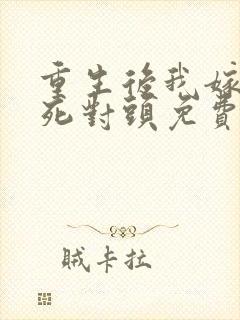 重生後我嫁
死對頭免費
賊卡拉